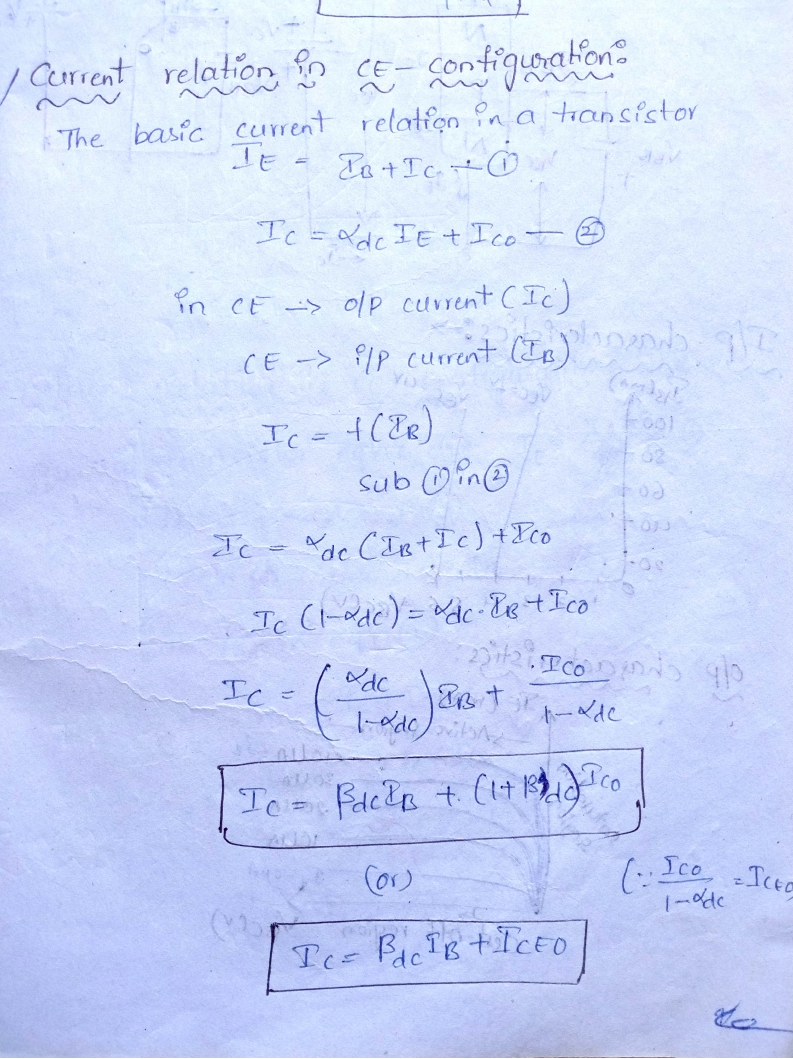 Current relation in CE-configuration:
The basic current relation in a transistor
IE = IB + IC — ①
IC = αdc IE + ICO — ②
in CE → o/p current (IC)
CE → i/p current (IB)
IC = f(IB)
sub ① in ②
IC = αdc (IB + IC) + ICO
IC (1-αdc) = αdc · IB + ICO
IC = (αdc / 1-αdc) IB + ICO / 1-αdc
IC = βdc IB + (1+βdc) ICO
(or)
(∵ ICO / 1-αdc = ICEO
IC = βdc IB + ICEO